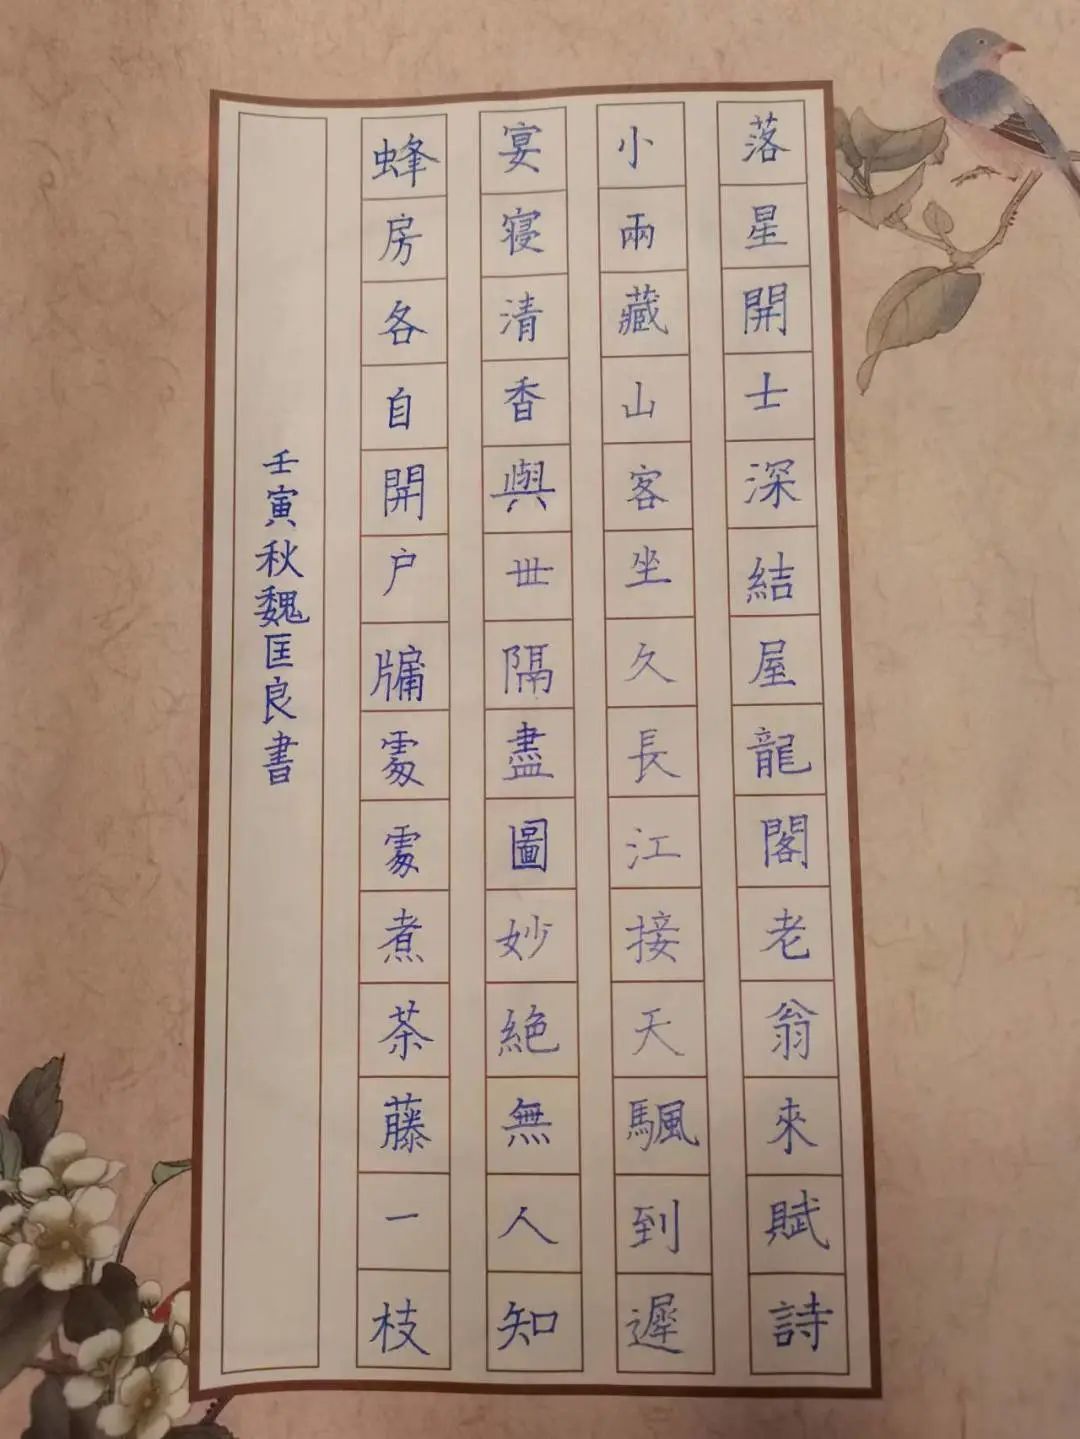 落星開士深結屋龍閣老翁來賦詩
小兩藏山客坐久長江接天颿到遲
宴寝清香與世隔盡圖妙絶無人知
蜂房各自開户牖處處煮茶藤一枝
壬寅秋魏匡良書